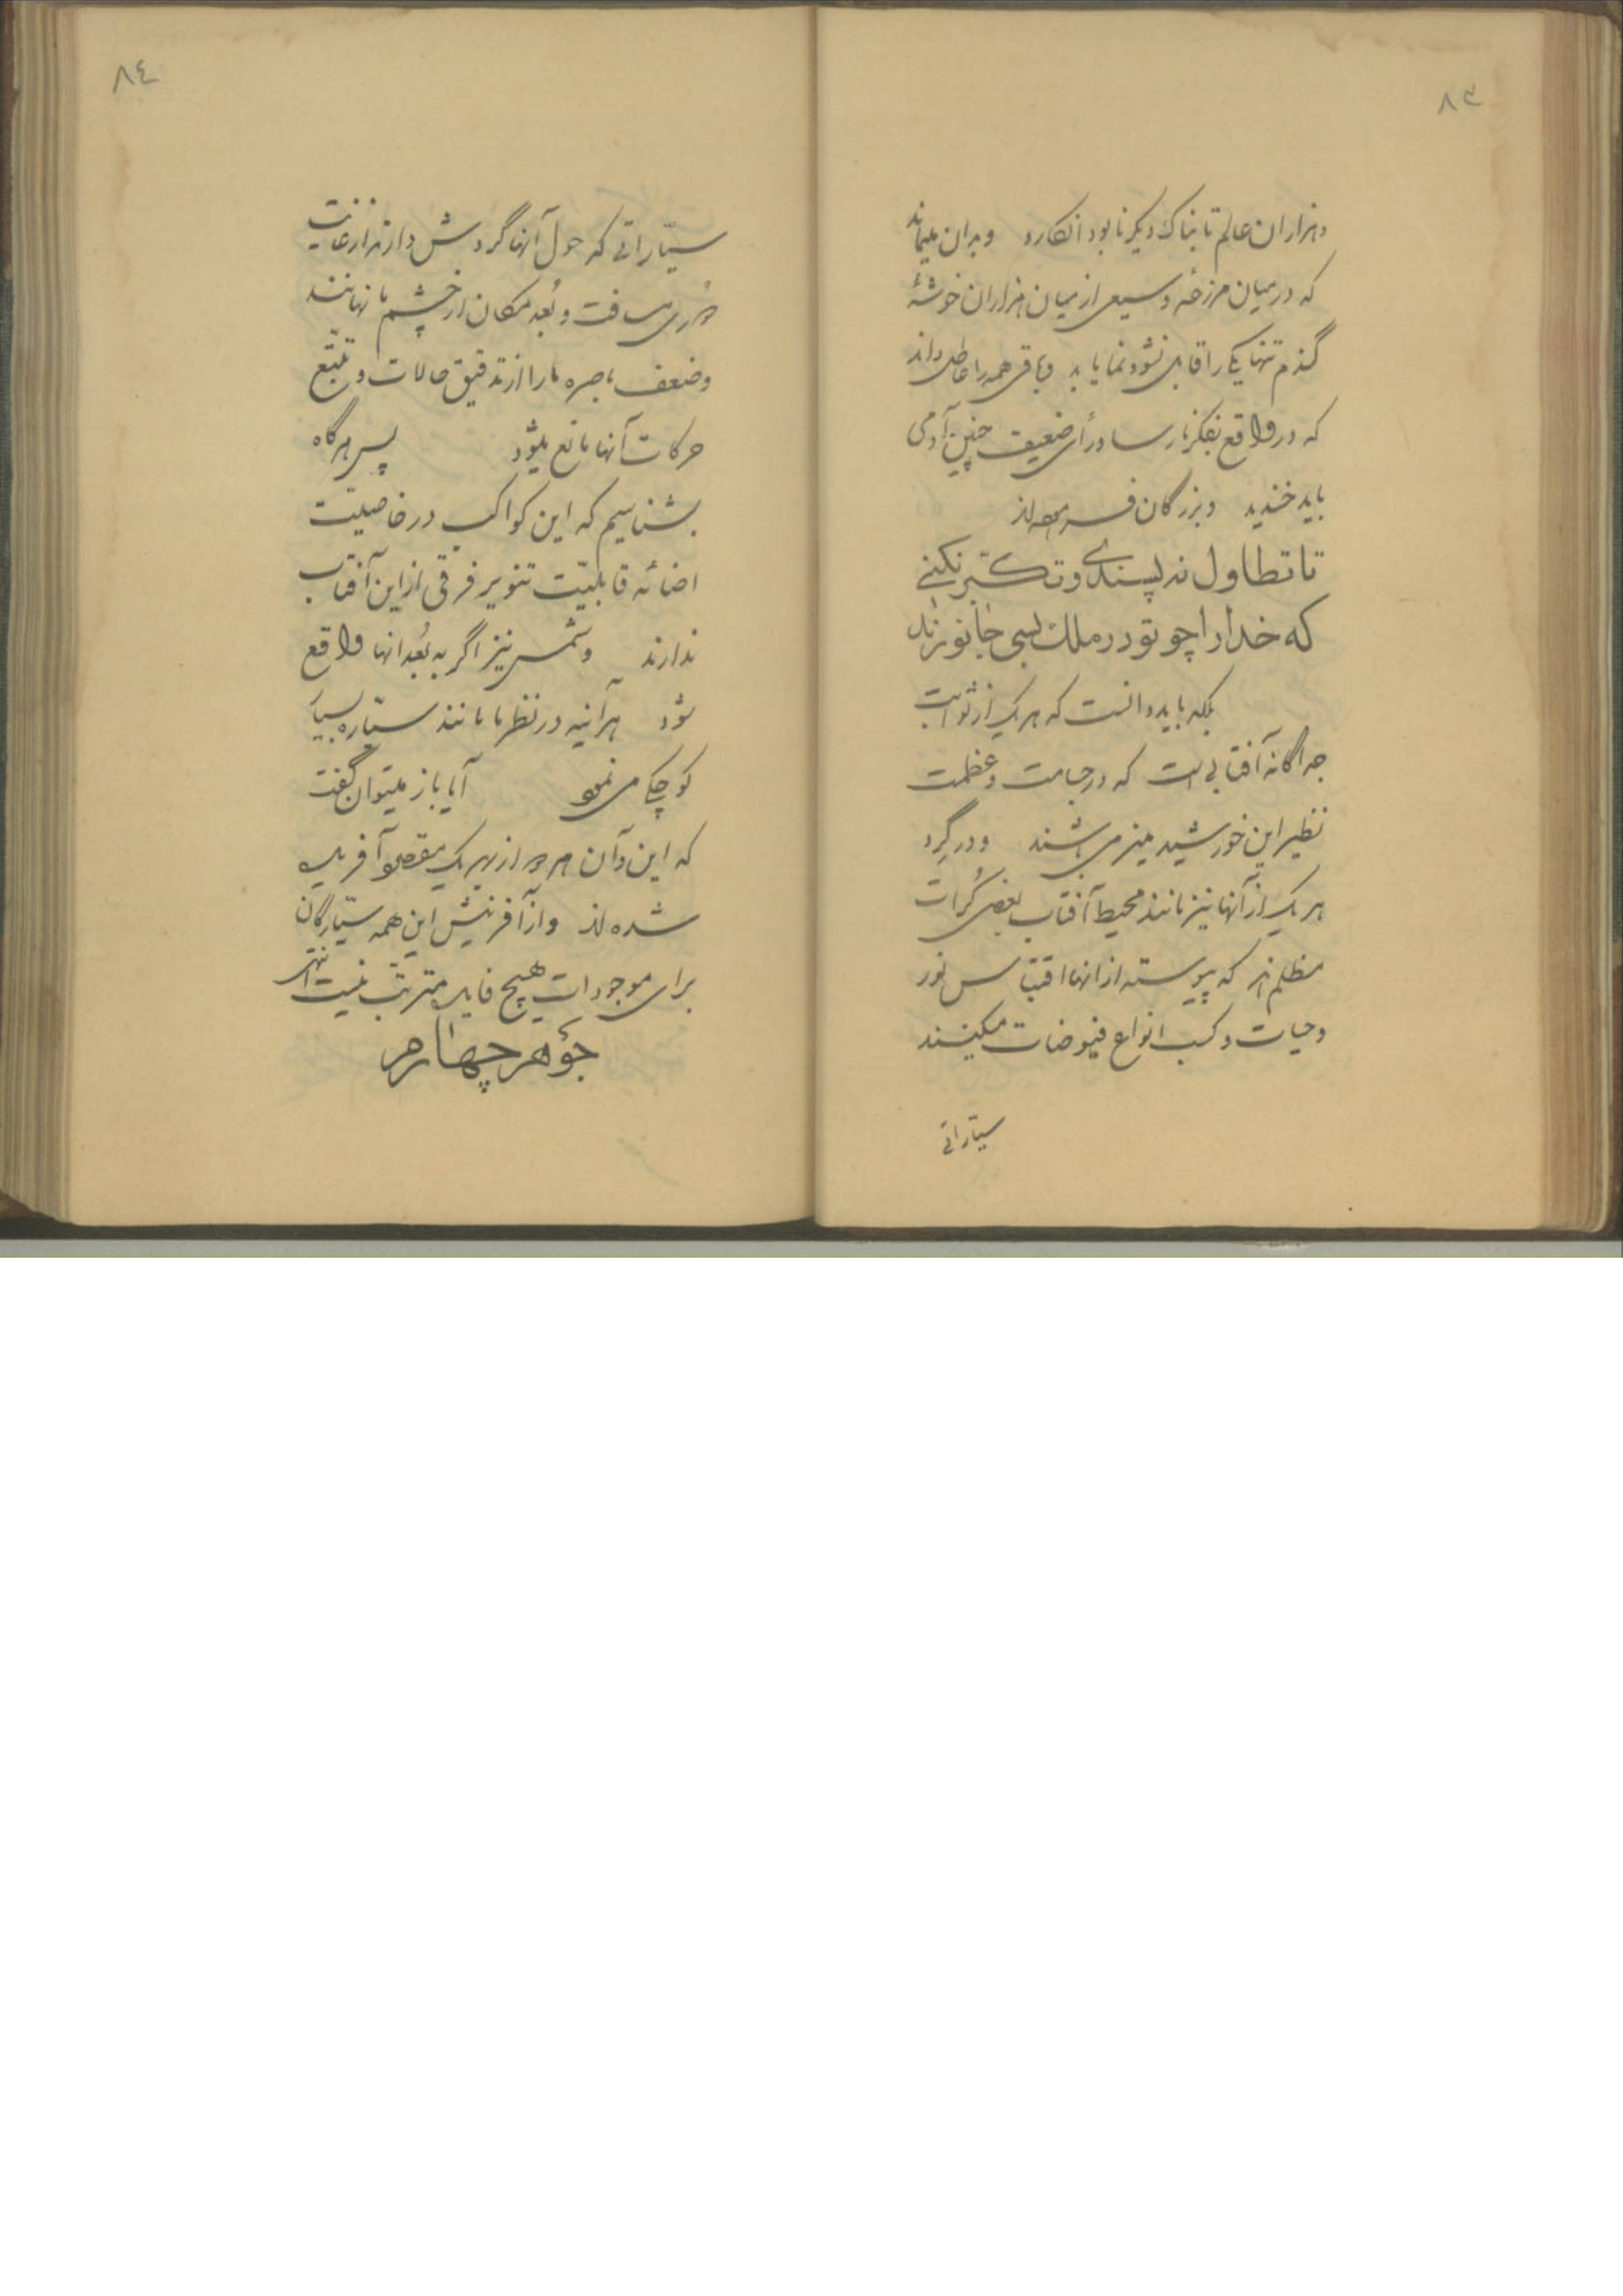 ۸۳
و هزاران عالم تابناک دیگر نابود انکارد و بدان میماند
که در میان مزرعهٔ وسیعی از میان هزاران خوشهٔ
گندم تنها یکی را قابل نشو و نما یابد و باقی همه را عاطل داند
که در واقع بفکر نارسا و رأی ضعیف چنین آدمی
باید خندید و بزرگان فرموده‌اند
تا تطاول نپسندی و تکبّر نکنی
که خدا را چو تو در ملک بسی جانورند
بلکه باید دانست که هر یک از ثوابت
جداگانه آفتابی است که در جسامت و عظمت
نظیر این خورشید منیر می باشند و در گرد
هر یک از آنها نیز مانند محیط آفتاب بعضی کُرات
مظلم‌اند که پیوسته از انها اقتباس نور
و حیات و کسب انواع فیوضات میکنند
سیّاراتی
۸٤
سیّاراتی که حول آنها گردش دارند از غایت
دُوری مسافت و بُعد مکان از چشم ما نهانند
و ضعف باصره ما را از تدقیق حالات و تتبّع
حرکات آنها مانع میشود پس هر گاه
بشناسیم که این کواکب در خاصیّت
اضائه قابلیّت تنویر فرقی از این آفتاب
ندارند و شمس نیز اگر به بُعد انها واقع
شود هر آینه در نظر ما مانند ستاره بسیار
کوچکی می نمود آیا باز میتوان گفت
که این و آن هر دو از بهر یک مقصود آفریده
شده‌اند و از آفرینش این همه سیّارگان
برای موجودات هیچ فایده مترتب نیست انتهی
جوهر چهارم